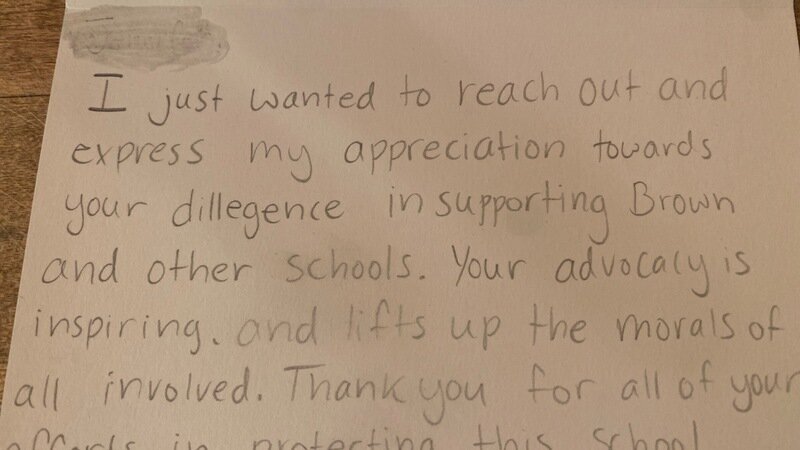 I just wanted to reach out and
express my appreciation towards
your dillegence in supporting Brown
and other schools. Your advocacy is
inspiring. and lifts up the morals of
all involved. Thank you for all of your
efforts in protecting this school